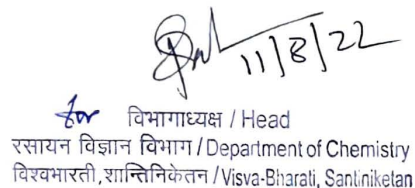 11/8/22
for विभागाध्यक्ष / Head
रसायन विज्ञान विभाग / Department of Chemistry
विश्वभारती, शान्तिनिकेतन / Visva-Bharati, Santiniketan